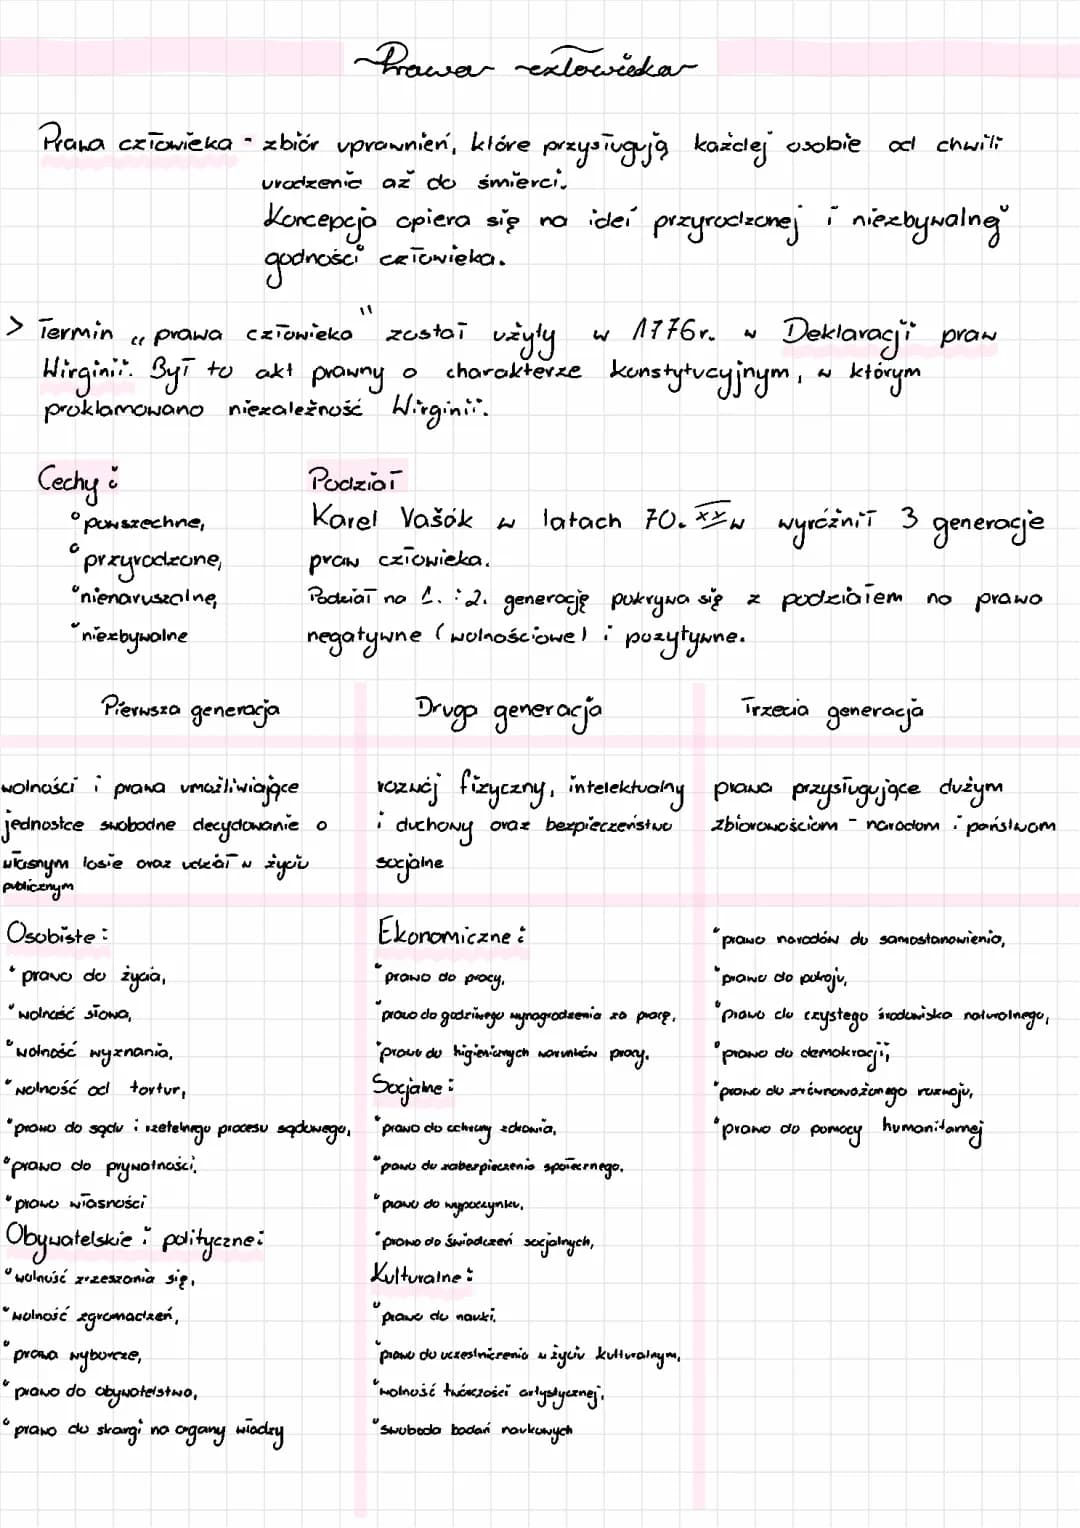 Prawa człowieka
Prawa człowieka - zbiór uprawnień, które przysługują każdej osobie od chwili
urodzenia aż do śmierci.
Koncepcja opiera się na idei przyrodzonej i niezbywalnej
godności człowieka.
> Termin „prawa człowieka" został użyty w 1776r. w Deklaracji praw
Wirginii. Był to akt prawny o charakterze konstytucyjnym, w którym
proklamowano niezależność Wirginii.
Cechy:
° powszechne,
° przyrodzone,
° nienaruszalne,
° niezbywalne
Podział
Karel Vašák w latach 70. XX w wyróżnił 3 generacje
praw człowieka.
Podział na 1. i 2. generację pokrywa się z podziałem na prawa
negatywne (wolnościowe) i pozytywne.
Pierwsza generacja
wolności i prawa umożliwiające
jednostce swobodne decydowanie o
własnym losie oraz udział w życiu
publicznym
Osobiste:
° prawo do życia,
° wolność słowa,
° wolność wyznania,
° wolność od tortur,
° prawo do sądu i rzetelnego procesu sądowego,
° prawo do prywatności,
° prawo własności
Obywatelskie i polityczne:
° wolność zrzeszania się,
° wolność zgromadzeń,
° prawa wyborcze,
° prawo do obywatelstwa,
° prawo do skargi na organy władzy
Druga generacja
rozwój fizyczny, intelektualny
i duchowy oraz bezpieczeństwo
socjalne
Ekonomiczne:
° prawo do pracy,
° prawo do godziwego wynagrodzenia za pracę,
° prawo do higienicznych warunków pracy.
Socjalne:
° prawo do ochrony zdrowia,
° prawo do zabezpieczenia społecznego,
° prawo do wypoczynku,
° prawo do świadczeń socjalnych,
Kulturalne:
° prawo do nauki,
° prawo do uczestniczenia w życiu kulturalnym,
° wolność twórczości artystycznej,
° swoboda badań naukowych
Trzecia generacja
prawa przysługujące dużym
zbiorowościom - narodom i państwom
° prawo narodów do samostanowienia,
° prawo do pokoju,
° prawo do czystego środowiska naturalnego,
° prawo do demokracji,
° prawo do zrównoważonego rozwoju,
° prawo do pomocy humanitarnej